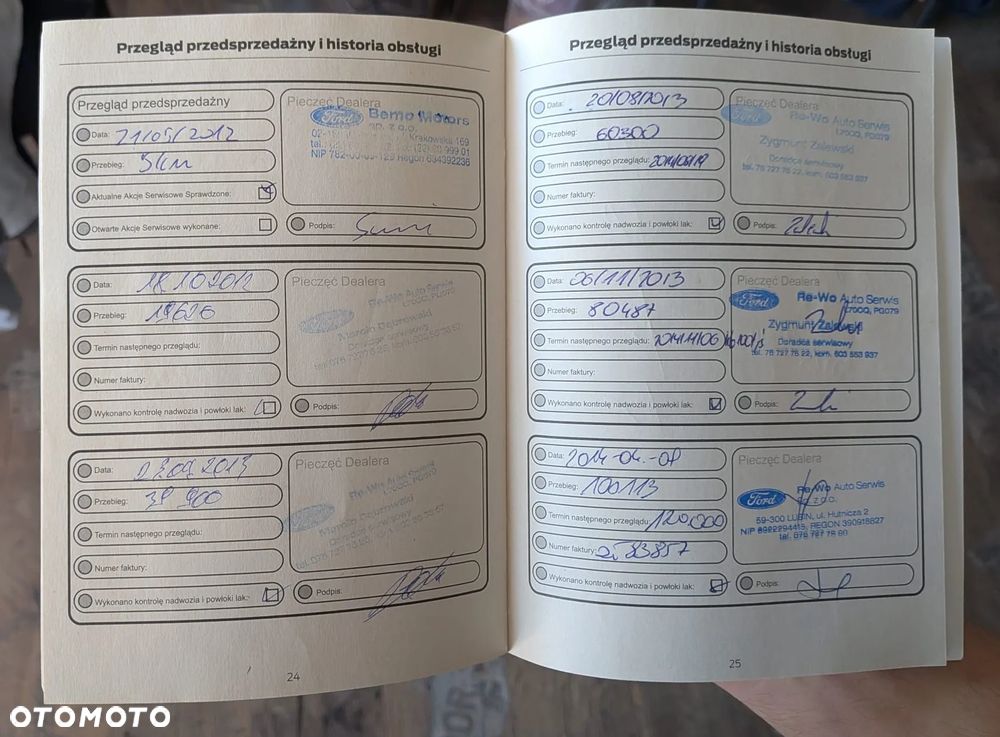 Przegląd przedsprzedażny i historia obsługi
Przegląd przedsprzedażny
Data: 21/05/2012
Przebieg: 5km
Aktualne Akcje Serwisowe Sprawdzone:
Otwarte Akcje Serwisowe wykonane:
Pieczęć Dealera
Ford Bemo Motors
sp. z o.o.
Krakowska 169
Podpis:
Data: 18.10.2012
Przebieg: 19626
Termin następnego przeglądu:
Numer faktury:
Wykonano kontrolę nadwozia i powłoki lak:
Pieczęć Dealera
Re-Wo Auto Serwis
Ford
Podpis:
Data:
Przebieg: 39 900
Termin następnego przeglądu:
Numer faktury:
Wykonano kontrolę nadwozia i powłoki lak:
Pieczęć Dealera
Re-Wo Auto Serwis
Ford
Podpis:
24
Przegląd przedsprzedażny i historia obsługi
Data: 20/08/2013
Przebieg: 60300
Termin następnego przeglądu:
Numer faktury:
Wykonano kontrolę nadwozia i powłoki lak:
Pieczęć Dealera
Ford Re-Wo Auto Serwis
L7OOQ, PQ079
Zygmunt Zalewski
Doradca serwisowy
tel. 76 727 76 22, kom. 603 553 937
Podpis:
Data: 26/11/2013
Przebieg: 80487
Termin następnego przeglądu: 2014/11/06
Numer faktury:
Wykonano kontrolę nadwozia i powłoki lak:
Pieczęć Dealera
Ford Re-Wo Auto Serwis
L7OOQ, PQ079
Zygmunt Zalewski
Doradca serwisowy
tel. 76 727 76 22, kom. 603 553 937
Podpis:
Data: 2014-04-08
Przebieg: 100113
Termin następnego przeglądu: 120000
Numer faktury:
Wykonano kontrolę nadwozia i powłoki lak:
Pieczęć Dealera
Ford Re-Wo Auto Serwis
Sp. z o.o.
59-300 LUBIN, ul. Hutnicza 2
NIP 6922294415, REGON 390918827
Podpis:
25
OTOMOTO